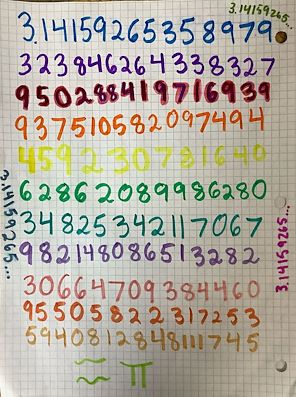 3.14159265...
3.14159265358979
323846264338327
950288419716939
937510582097494
459230781640
62862089986280
34825342117067
982148086513282
30664709384460
95505822317253
5940812848111745
≈ π
3.14159265...
3.14159265...